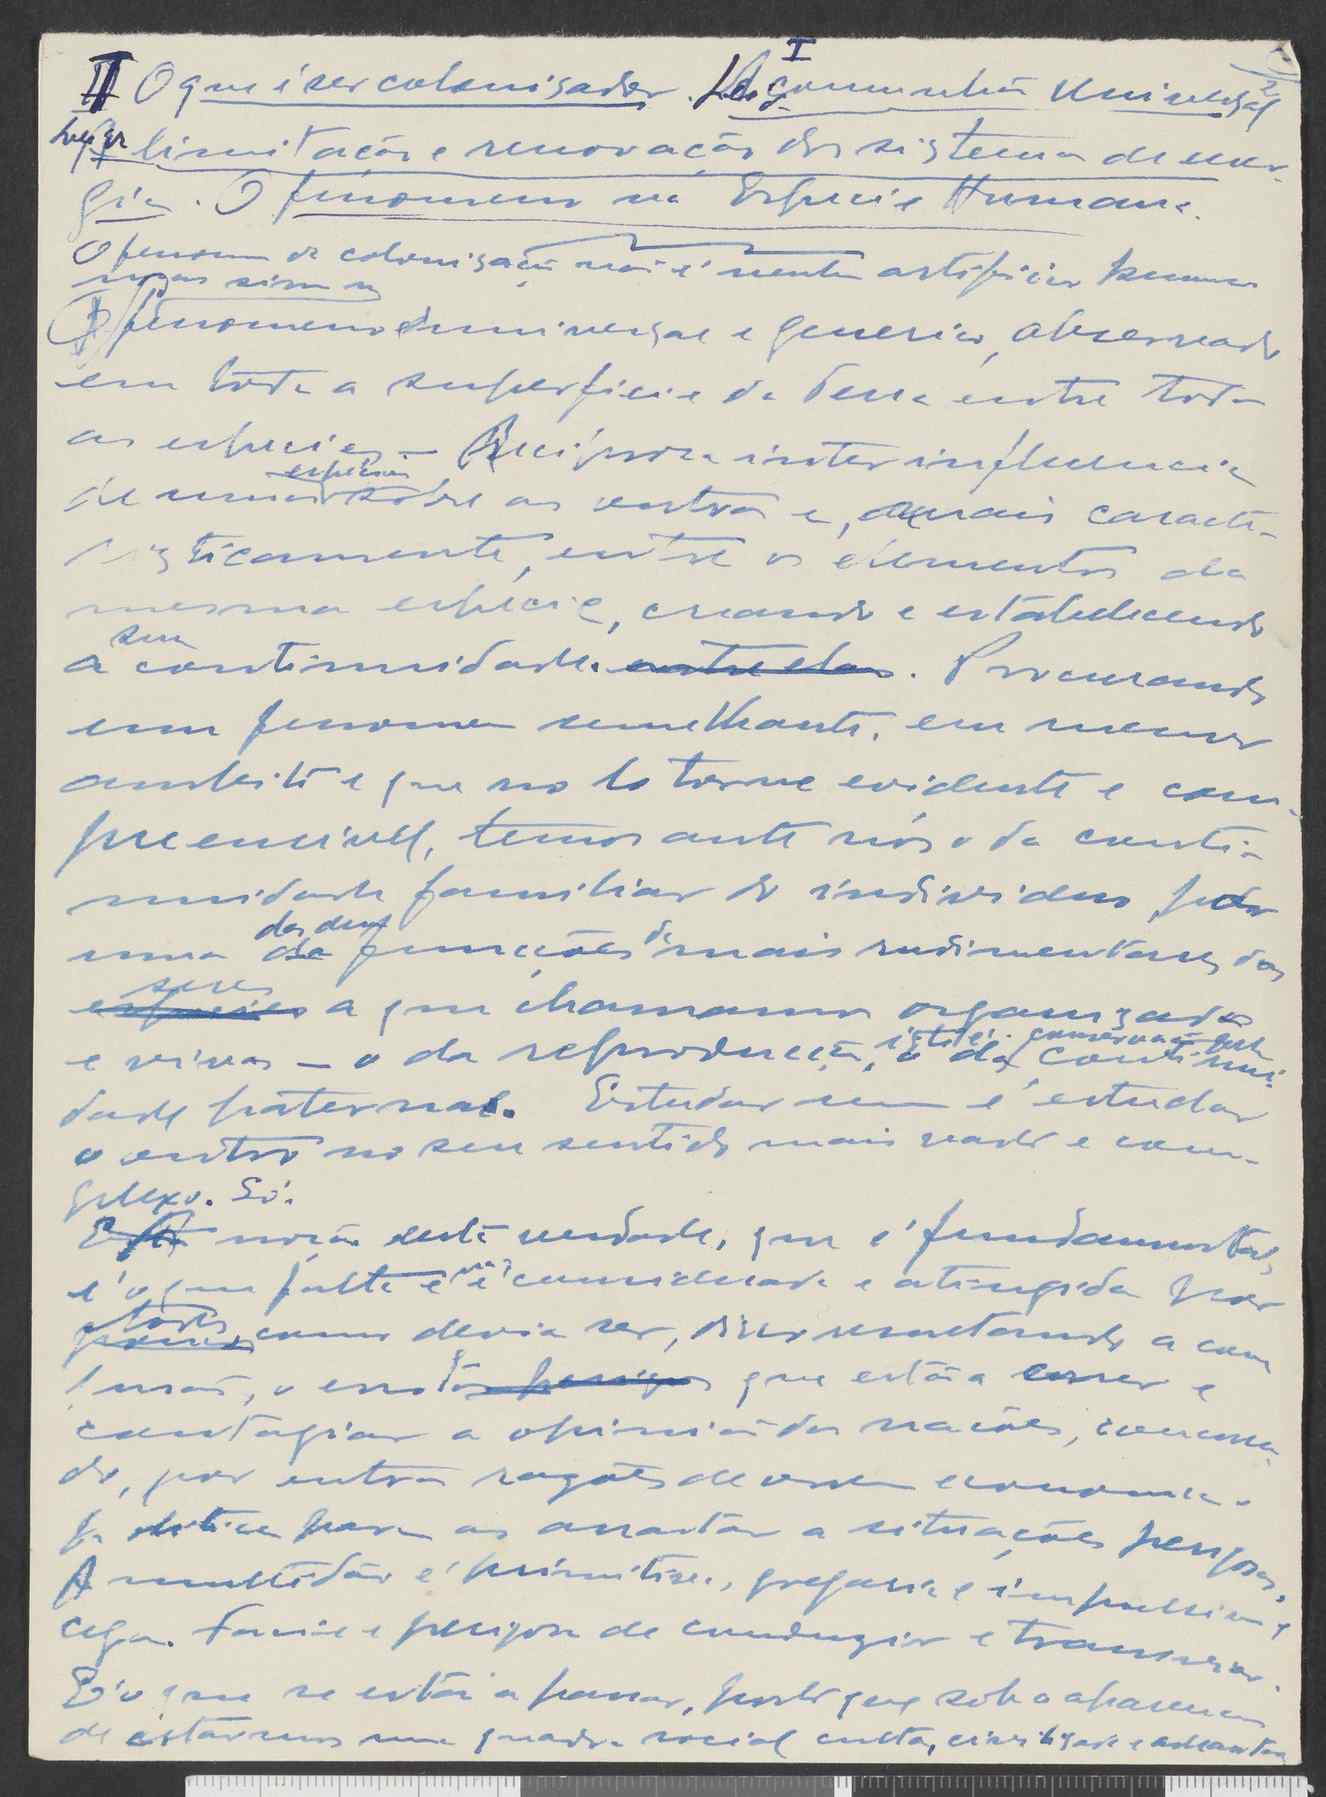 II O que é ser colonisador. I Communhão Universal
limitação e renovação do sistema de ener-
gia. O fenomeno na Especie Humana.
O fenom de colonisação não é mentu artificio human
mas sim u
fenomeno universal e generico, observado
em toda a superficie da Terra entre toda
as especies — Reciproca inter influencia
especies
de umas sobre as outras e, mais caracte-
risticamente, entre os elementos da
mesma especie, creando e estabelecendo
sua
a continuidade. entre elas. Procurando
um fenomeno semelhante, em menor
ambito e que no lo torne evidente e com-
preensivel, temos ante nós o da conti-
nuidade familiar do individuo, pela
das duas
uma da funcções de mais rudimentares dos
seres
especies a que chamamos organizados
isto é: conservação
e vivos — o da reproducção, o da continui-
dade paternal. Estudar um é estudar
o outro no seu sentido mais vasto e com-
plexo. Só.
noção desta verdade, que é fundamental,
é o que falta e não é considerada e atingida por
todos
como devia ser, disso resultando a con
fusão, o erro que estão a correr e
contagiar a opinião das nações, concorren
do, por outras razões de ordem economica.
politica para as arrastar a situações perigosas.
A multidão é primitiva, gregaria e impulsiva e
cega. Facil e perigosa de conduzir e transviar.
É o que se está a passar, posto que sob a aparencia
de estarmos num quadro social culto, civilizado e adeantado